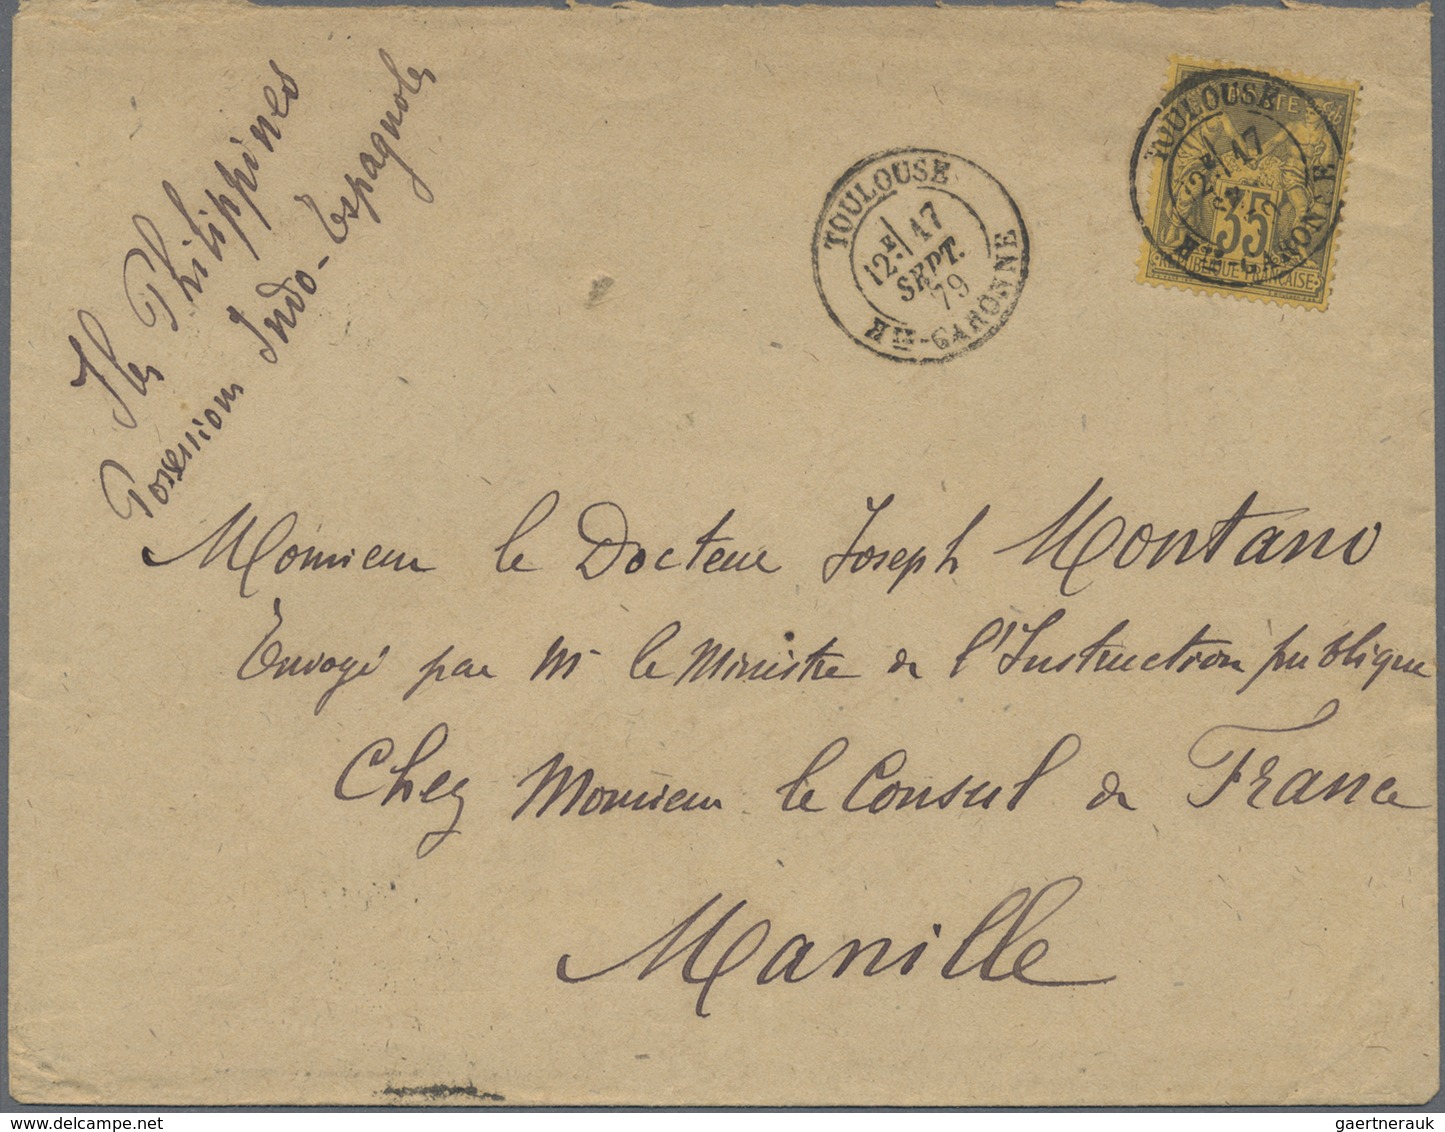 Iles Philippines
Possessions Indo-Espagnoles
TOULOUSE
12E 17
SEPT.
79
Hte-GARONNE
TOULOUSE
12E 17
SEPT.
Hte-GARONNE
POSTE
35
REPUBLIQUE FRANCAISE
Monsieur le Docteur Joseph Montano
Envoyé par Mr le Ministre de l'Instruction publique
Chez Monsieur le Consul de France
Manille
gaertnerauk@delcampe.net